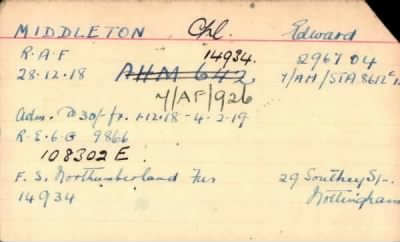 MIDDLETON Cpl. Edward
R.A.F 14934. 296704
28.12.18 AHM 642 7/AM/STA
7/AF/926
Adm. @ 30/- fr. 1-12-18 - 4.2.19
R.E.6.G 9866
108302 E
F.S. Northumberland Fus 29 Southey St..
14934 Nottingham